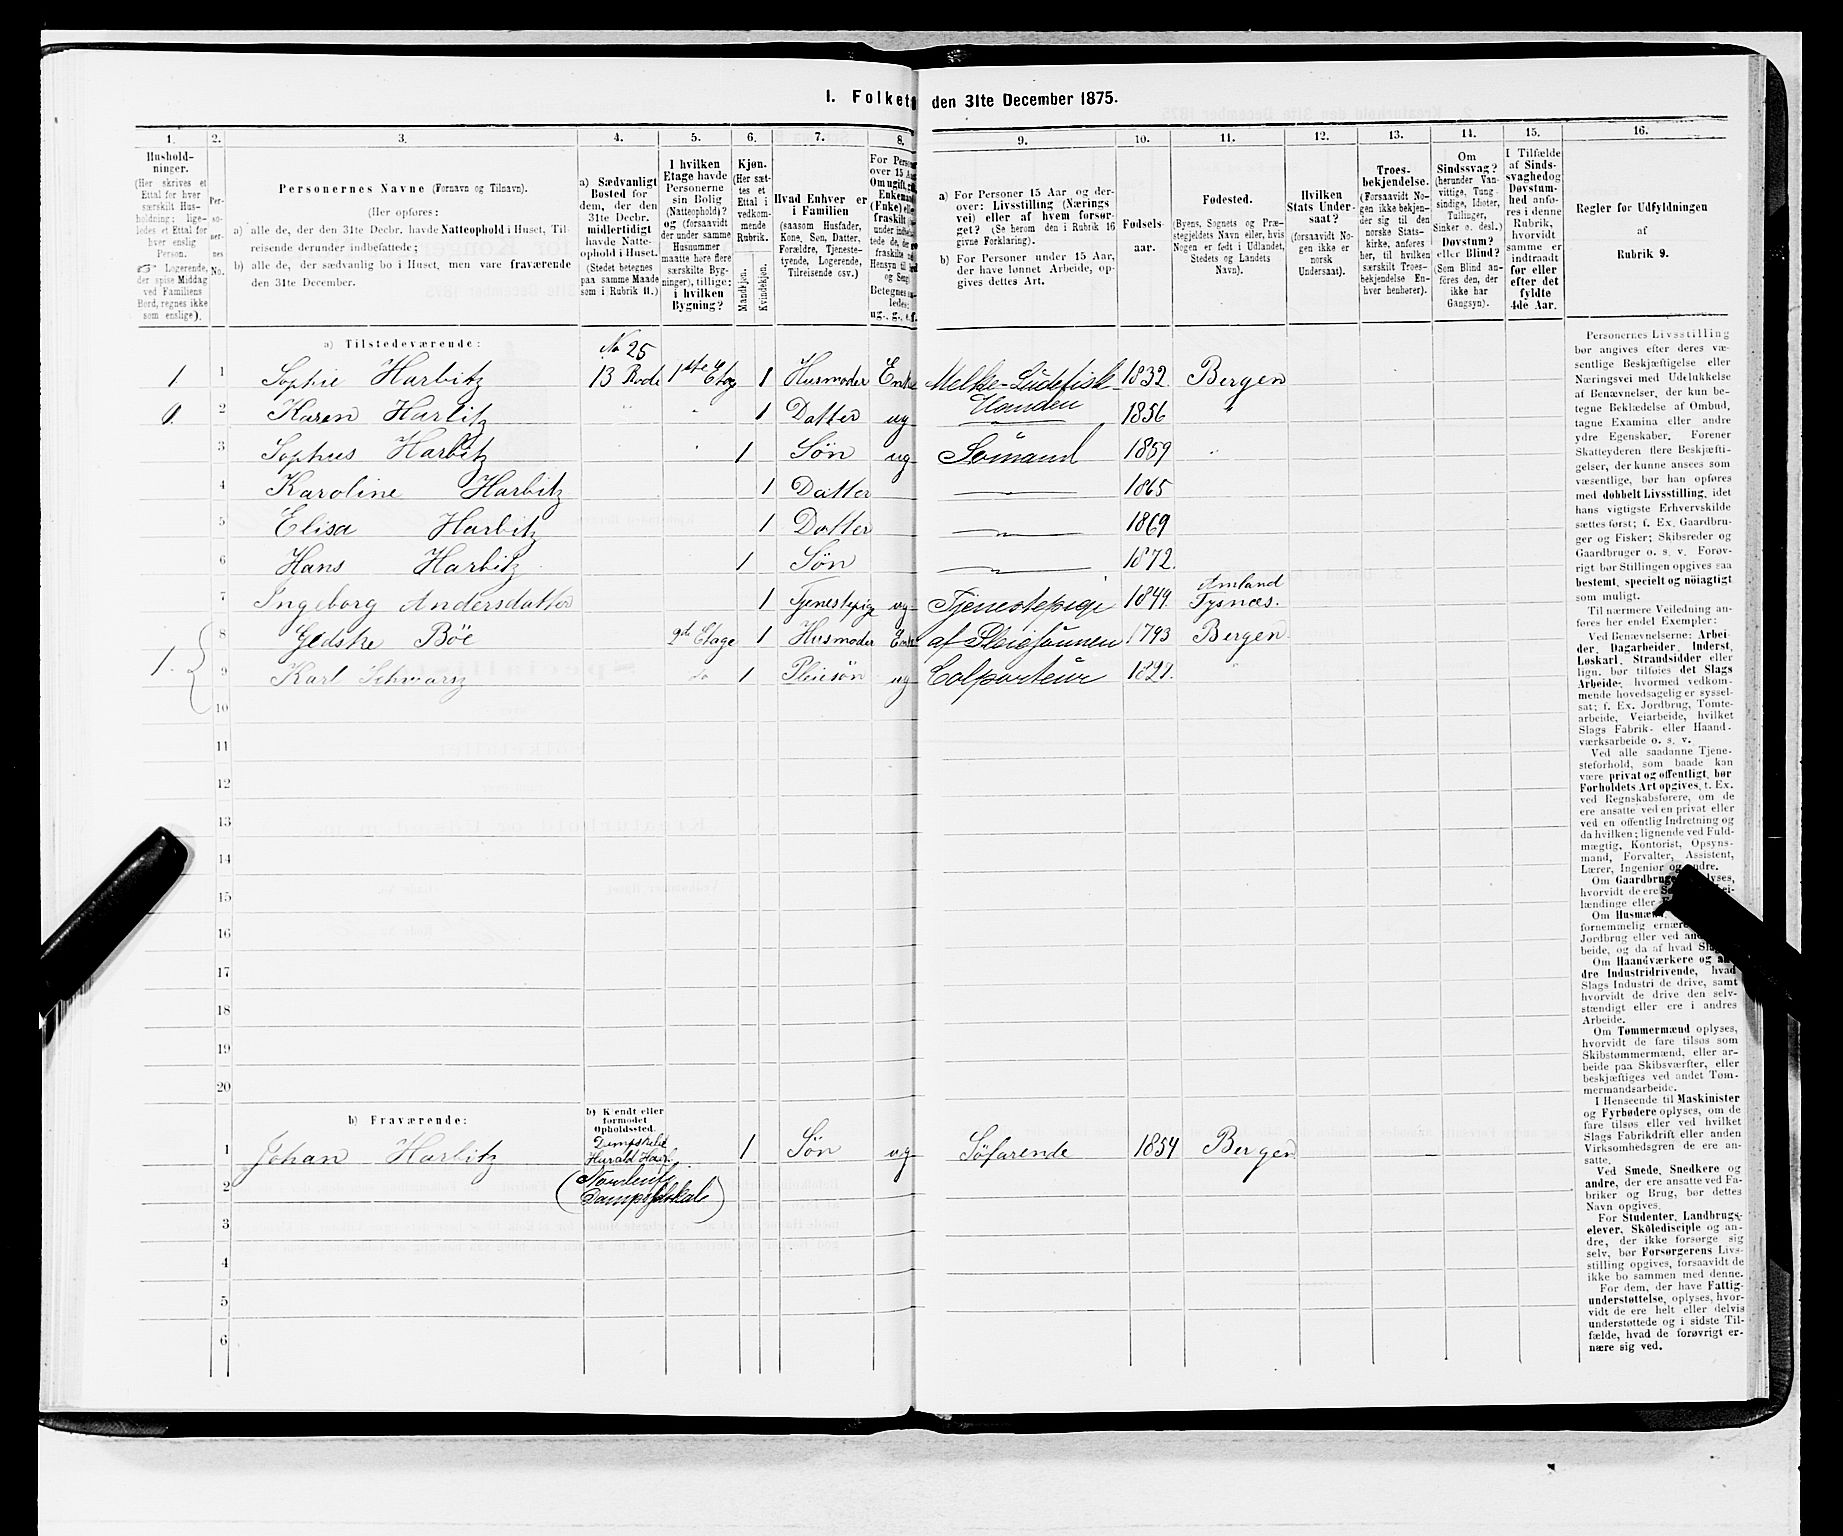 I. Folket
den 31te December 1875.
1.
2.
3.
4.
5.
6.
7.
8.
9.
10.
11.
12.
13.
14.
15.
16.
Hushold-
ninger.
(Her skrives et
Ettal for hver
særskilt Hus-
holdning; lige-
ledes et Ettal for
hver enslig
Person.
Logerende,
der spise Middag
ved Familiens
Bord, regnes ikke
som enslige).
Per-
so-
ner-
nes
No.
Personernes Navne (Fornavn og Tilnavn).
(Her opføres:
a) alle de, der den 31te Decbr. havde Natteophold i Huset, Til-
reisende derunder indbefattede;
b) alle de, der sædvanlig bo i Huset, men vare fraværende
den 31te December.
a) Sædvanligt
Bosted for
dem, der den
31te Decbr.
midlertidigt
havde Natte-
ophold i Huset.
(Stedet betegnes
paa samme Maade
som i Rubrik 11.)
I hvilken
Etage havde
Personerne
sin Bolig
(Natteophold)?
og (forsaavidt
der under samme
Husnummer
maatte høre flere
særskilte Byg-
ninger), tillige:
i hvilken
Bygning?
Kjøn.
(Her sæt-
tes et
Ettal i
vedkom-
mende
Rubrik.
Mandkjøn.
Kvindekjøn.
Hvad Enhver er
i Familien
(saasom Husfader,
Kone, Søn, Datter,
Forældre, Tjeneste-
tyende, Logerende,
Tilreisende osv.)
For Person
over 15 Aar
Om ugift, gift
Enkemand
(Enke) eller
fraskilt
ug., g., e.f.
a) For Personer 15 Aar og der-
over: Livsstilling (Nærings
vei) eller af hvem forsør-
get? (Se herom den i Rubrik 16
givne Forklaring).
b) For Personer under 15 Aar,
der have lønnet Arbeide, op-
gives dettes Art.
Fødsels-
aar.
Fødested.
(Byens, Sognets og Præ-
stegjeldets Navn eller, hvis
Nogen er født i Udlandet,
Stedets og Landets
Navn).
Hvilken
Stats Under-
saat?
(forsaavidt No-
gen ikke er
norsk
Undersaat).
Troes-
bekjendelse.
(Forsaavidt No-
gen ikke bekjen-
der sig til den
norske Stats-
kirke, anføres
her, til hvilken
særskilt Troes-
bekjendelse En-
hver henhører).
Om
Sindssvag?
(herunder Van-
vittige, Tung-
sindige, Idioter,
Tullinger,
Sinker o. desl.)
Døvstum?
eller Blind?
(Som Blind an-
føres den, der
ikke har
Gangsyn).
I Tilfælde
af Sinds-
svaghed og
Døvstum-
hed anfø-
res i denne
Rubrik,
hvorvidt
samme er
indtraadt
før eller
efter det
fyldte
4de Aar.
Regler for Udfyldningen
af
Rubrik 9.
a) Tilstedeværende:
No 25
1 1 Sophie Harbitz 13 Rode 1ste Etag 1 Husmoder Enke Melke-Ludefisk- 1832. Bergen
0. 2 Karen Harbitz " " 1 Datter ug Handen 1856 "
3 Sophus Harbitz " 1 Søn ug Sømand 1859 "
4 Karoline Harbitz 1 Datter 1865
5 Elisa Harbitz 1 Datter 1869
6 Hans Harbitz 1 Søn 1872.
Amland
7 Ingeborg Andersdatter 1 Tjenestepige ug Tjenestepige 1849. Tysnæs.
8 Gjedske Böe 2de Etage 1 Husmoder Enke af Pleiesønnen 1793 Bergen
1. 9 Karl Schwarz do 1 Pleiesøn ug Colporteur 1821. "
10
11
12
13
14
15
16
17
18
19
20
b) Fraværende:
b) Kjendt eller
formodet
Opholdssted.
Dampskibet
1 Johan Harbitz Harald Haarf. 1 Søn ug Söfarende 1854 Bergen
2
3
4
5
6
Personernes Livsstilling
bør angives efter deres væ-
sentlige Beskjæftigelse eller
Næringsvei med Udelukkelse
af Benævnelser, der kun be-
tegne Beklædelse af Ombud,
tagne Examina eller andre
ydre Egenskaber. Forener
Skatteyderen flere Beskjæfti-
gelser, der kunne ansees som
væsentlige, bør han opføres
med dobbelt Livsstilling, idet
hans vigtigste Erhvervskilde
sættes først; f. Ex. Gaardbru-
ger og Fisker; Skibsreder og
Gaardbruger o. s. v. Forøv-
rigt bør Stillingen opgives saa
bestemt, specielt og nöiagtigt
som muligt.
Til nærmere Veiledning an-
føres her endel Exempler:
Ved Benævnelserne: Arbei-
der, Dagarbeider, Inderst,
Løskarl, Strandsidder eller
lign. bør tilføies det Slags
Arbeide, hvormed vedkom-
mende hovedsagelig er syssel-
sat; f. Ex. Jordbrug, Tomte-
arbeide, Veiarbeide, hvilket
Slags Fabrik- eller Haand-
værksarbeide o. s. v.
Ved alle saadanne Tjene-
steforhold, som baade kan
være privat og offentligt, bør
Forholdets Art opgives, f. Ex.
ved Regnskabsførere, om de
ere ansatte ved en privat eller
ved en offentlig Indretning og
da hvilken; lignende ved Fuld-
mægtig, Kontorist, Opsyns-
mand, Forvalter, Assistent,
Lærer, Ingeniør og andre.
Om Gaardbruge
hvorvidt de ere
lændinge eller
Om Husmænd
fornemmelig
Jordbrug eller ved
beide, og da af hvad
Om Haandværkere og an-
dre Industridrivende, hvad
Slags Industri de drive, samt
hvorvidt de drive den selv-
stændigt eller ere i andres
Arbeide.
Om Tømmermænd oplyses,
hvorvidt de fare tilsøs som
Skibstømmermænd, eller ar-
beide paa Skibsværfter, eller
beskjæftiges ved andet Tøm-
mermandsarbeide.
I Henseende til Maskinister
og Fyrbødere oplyses, om de
fare tilsøs eller ved hvilket
Slags Fabrikdrift eller anden
Virksomhedsgren de ere an-
satte.
Ved Smede, Snedkere og
andre, der ere ansatte ved Fa-
briker og Brug, bør dettes
Navn opgives.
For Studenter, Landbrugs-
elever, Skoledisciple og an-
dre, der ikke forsørge sig
selv, bør Forsørgerens Livs-
stilling opgives, forsaavidt de
ikke bo sammen med denne.
For dem, der have Fattig-
understøttelse, oplyses, hvor-
vidt de ere helt eller delvis
understøttede og i sidste Til-
fælde, hvad de forøvrigt er-
nære sig ved.